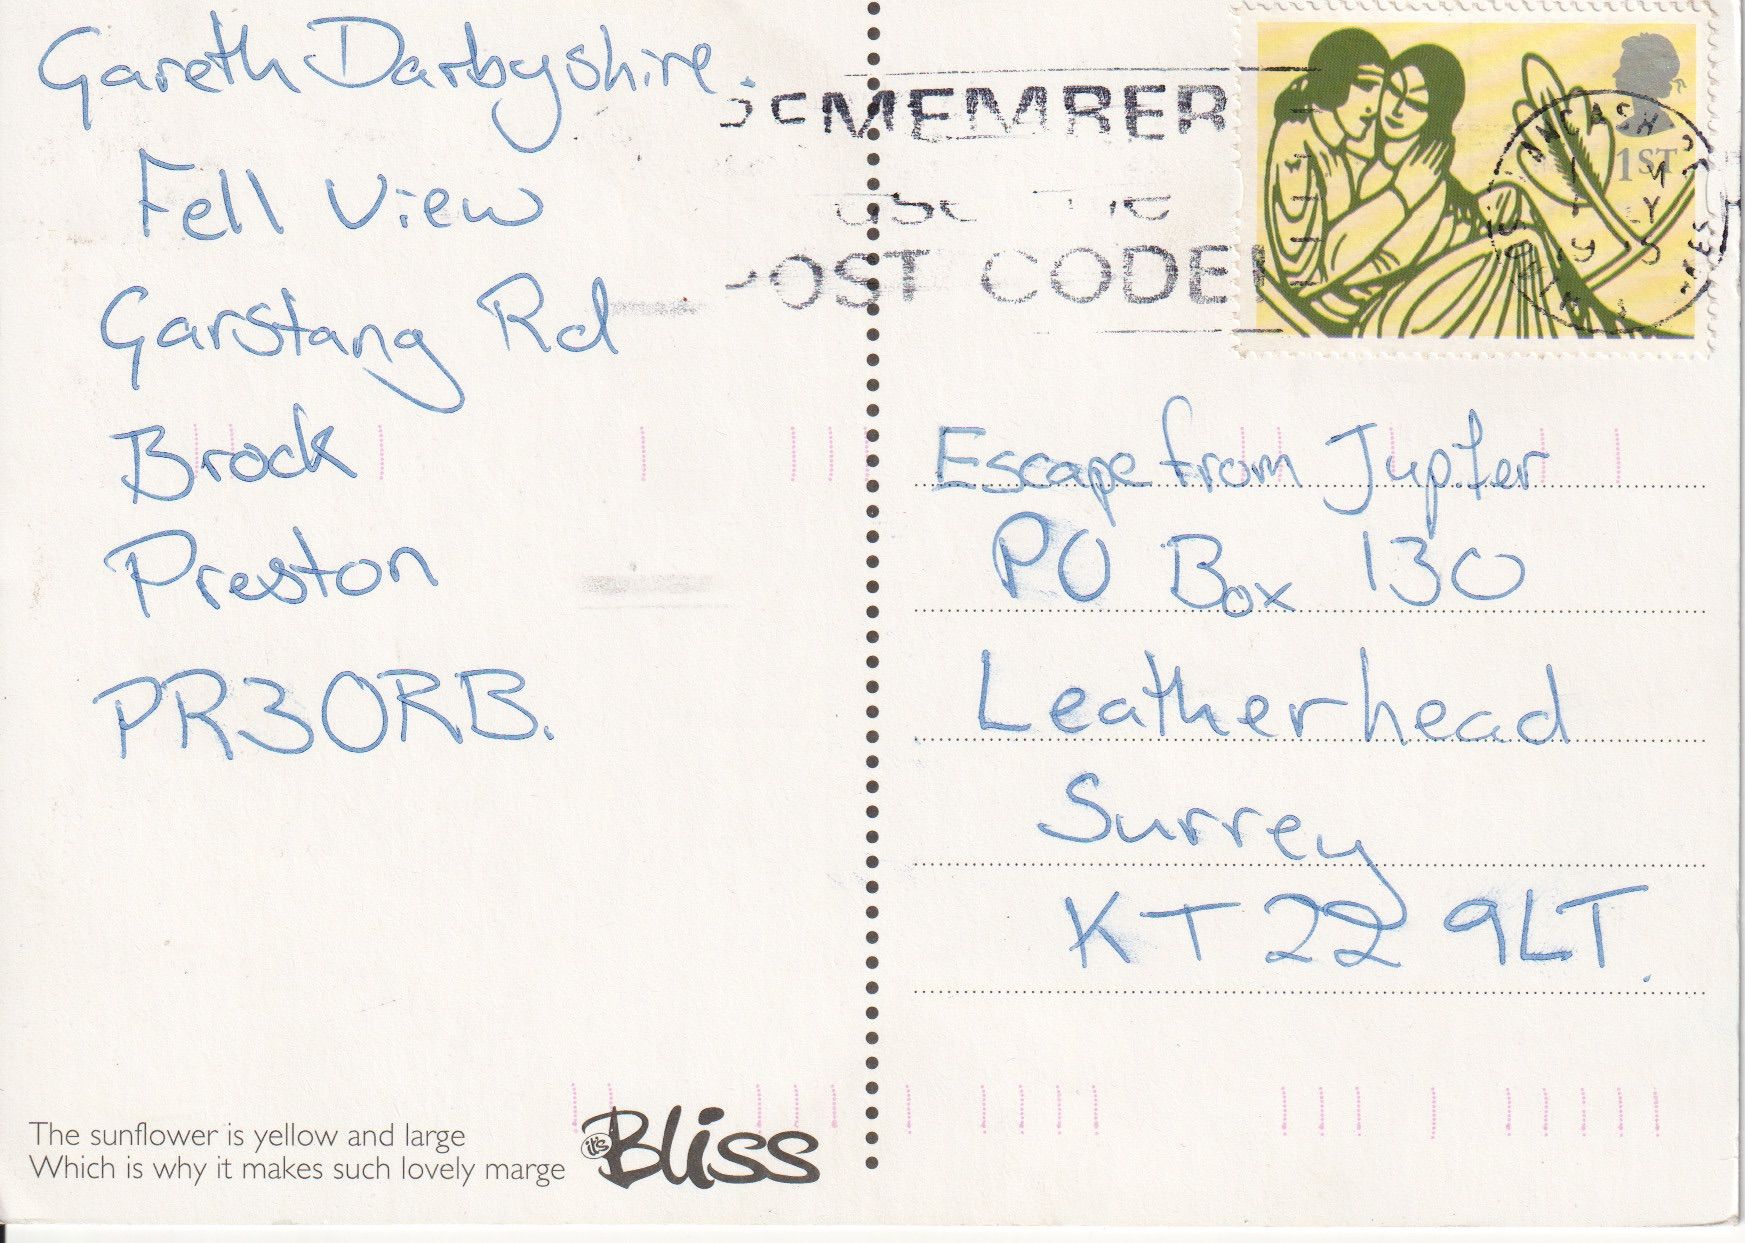 Gareth Darbyshire.
Fell View
Garstang Rd
Brock
Preston
PR3 0RB.
REMEMBER
USE THE
POST CODE
1ST
Escape from Jupiter
PO Box 130
Leatherhead
Surrey
KT22 9LT.
The sunflower is yellow and large
Which is why it makes such lovely marge
it's Bliss